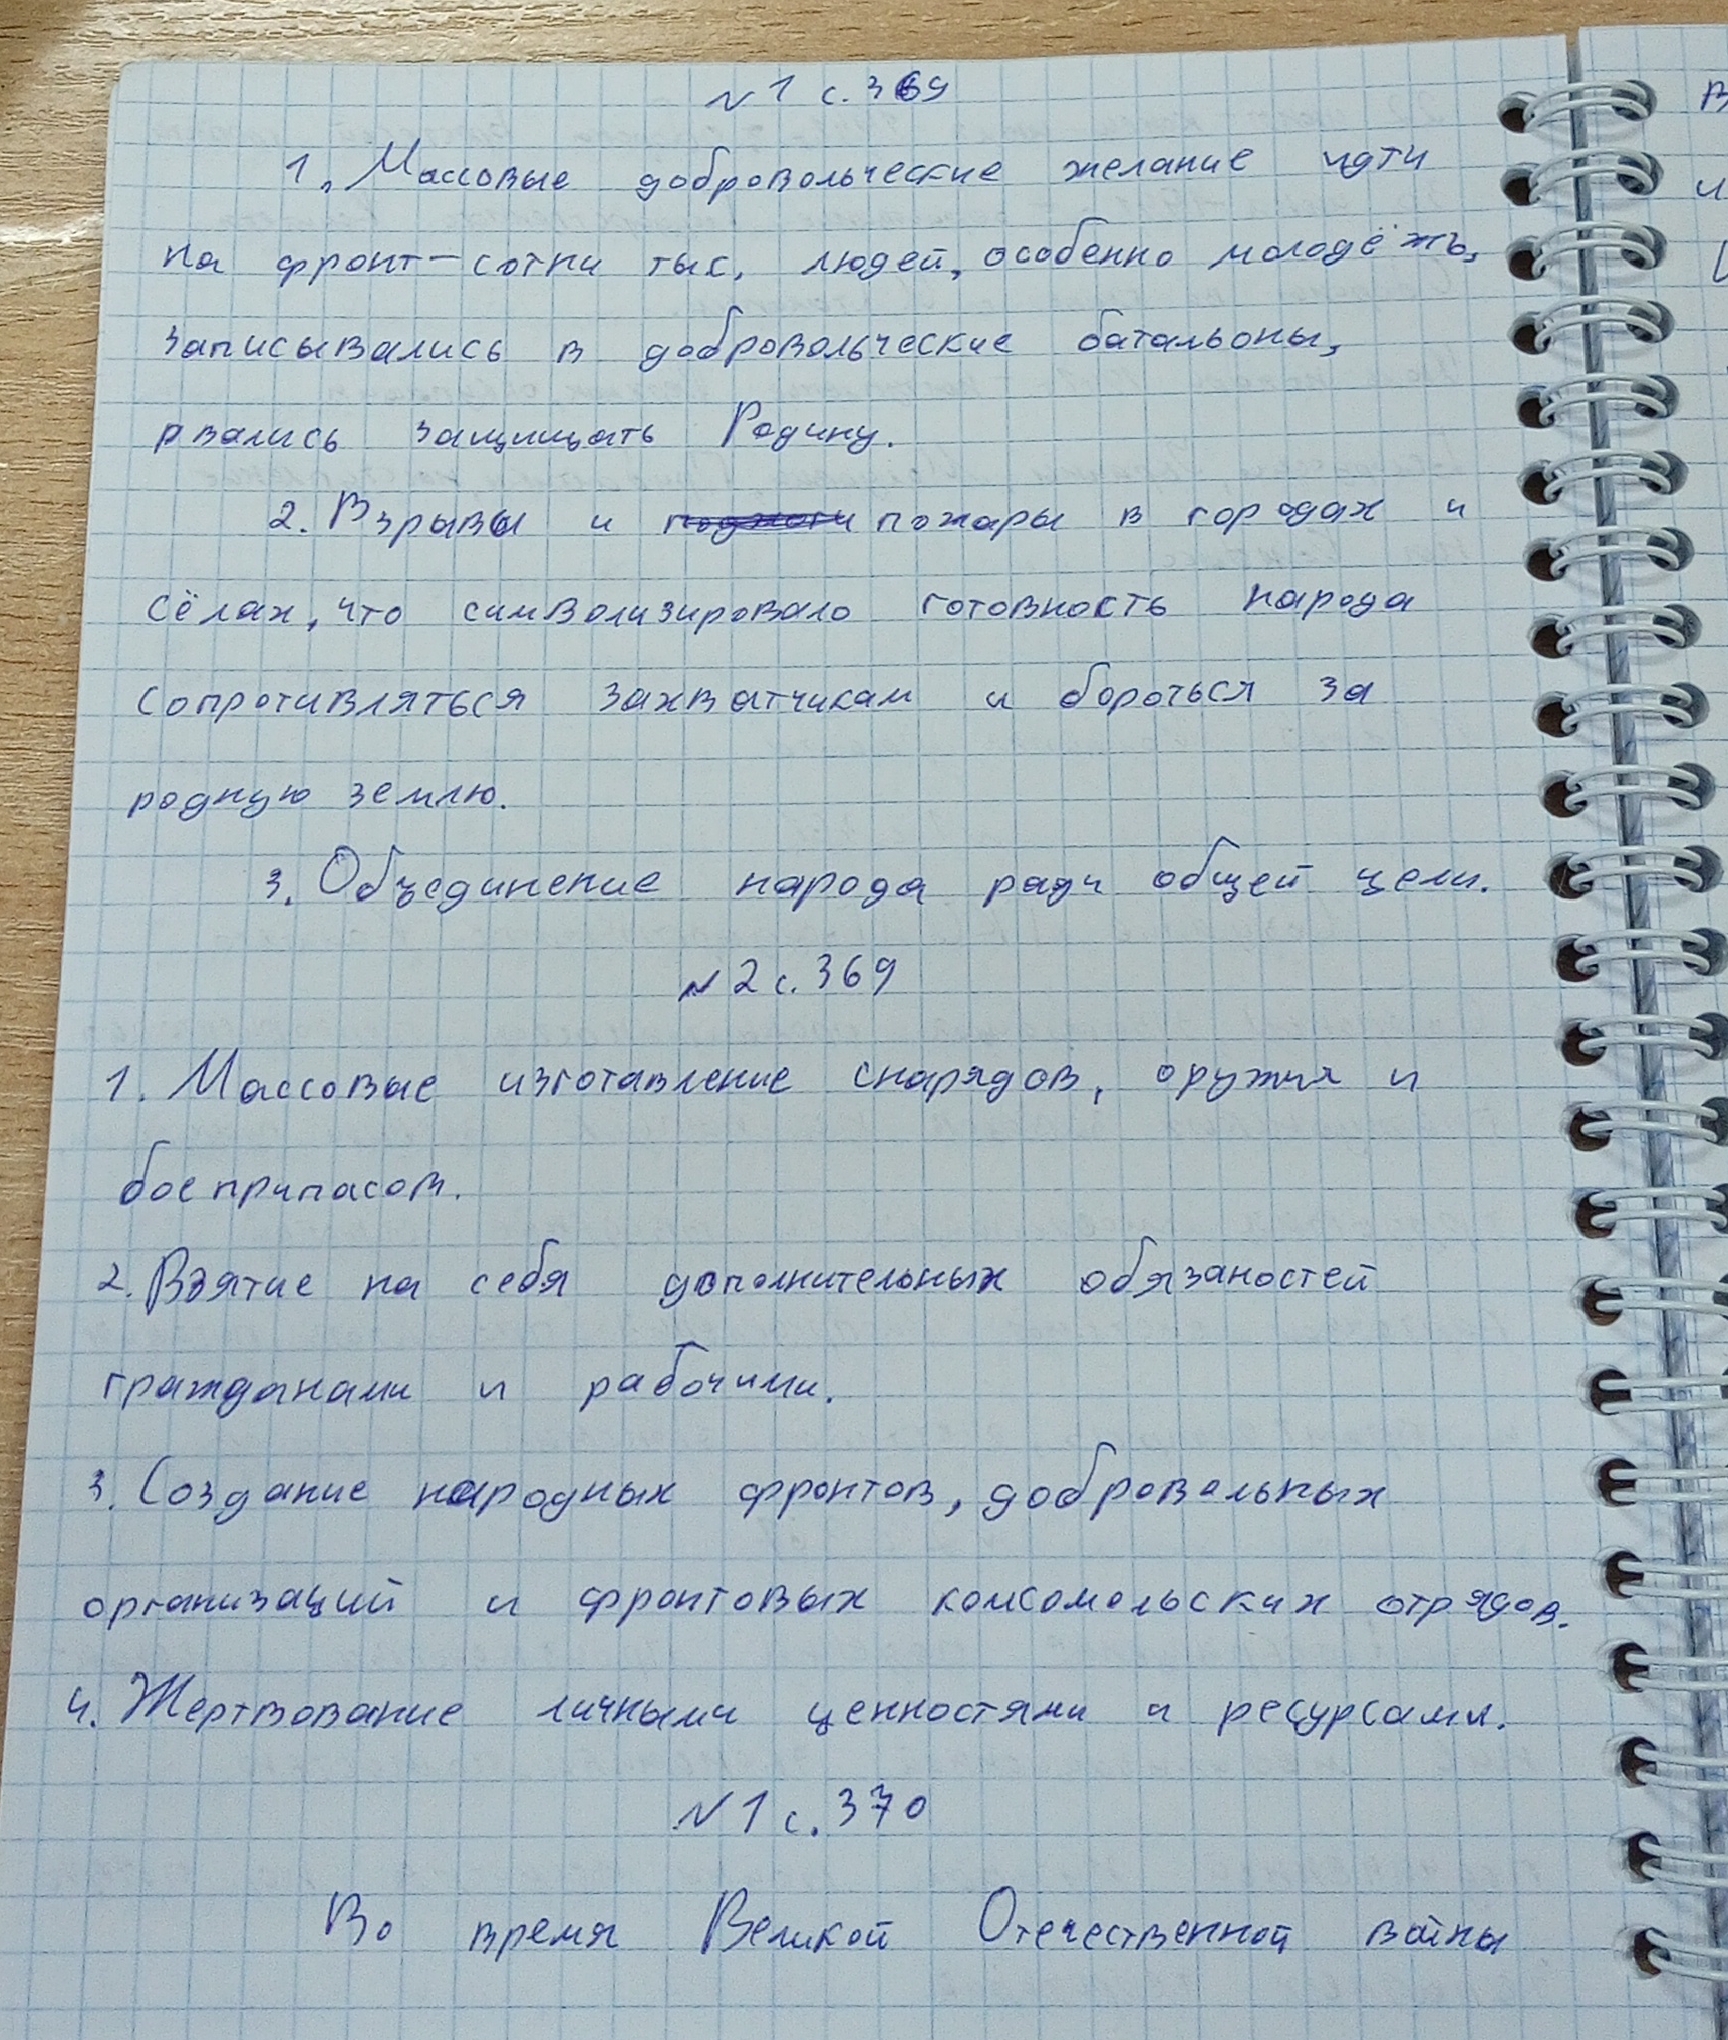 №1 с. 369
1. Массовые добровольческие желание идти
на фронт — сотни тыс. людей, особенно молодёжь,
записывались в добровольческие батальоны,
рвались защищать Родину.
2. Взрывы и поджоги пожары в городах и
сёлах, что символизировало готовность народа
сопротивляться захватчикам и бороться за
родную землю.
3. Объединение народа ради общей цели.
№2 с. 369
1. Массовые изготавление снарядов, оружия и
боеприпасов.
2. Взятие на себя дополнительных обязаностей
гражданами и рабочими.
3. Создание народных фронтов, добровальных
организаций и фронтовых комсомольских отрядов.
4. Жертвование личными ценностями и ресурсами.
№1 с. 370
Во время Великой Отечественной войны